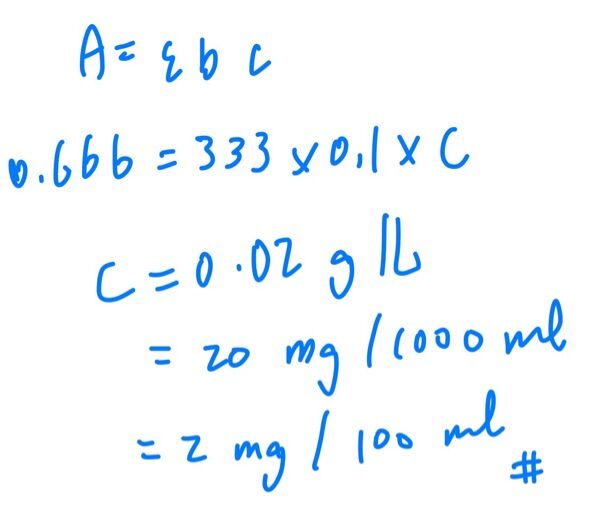 A = ε b c
0.666 = 333 x 0.1 x C
C = 0.02 g/L
= 20 mg / 1000 ml
= 2 mg / 100 ml #